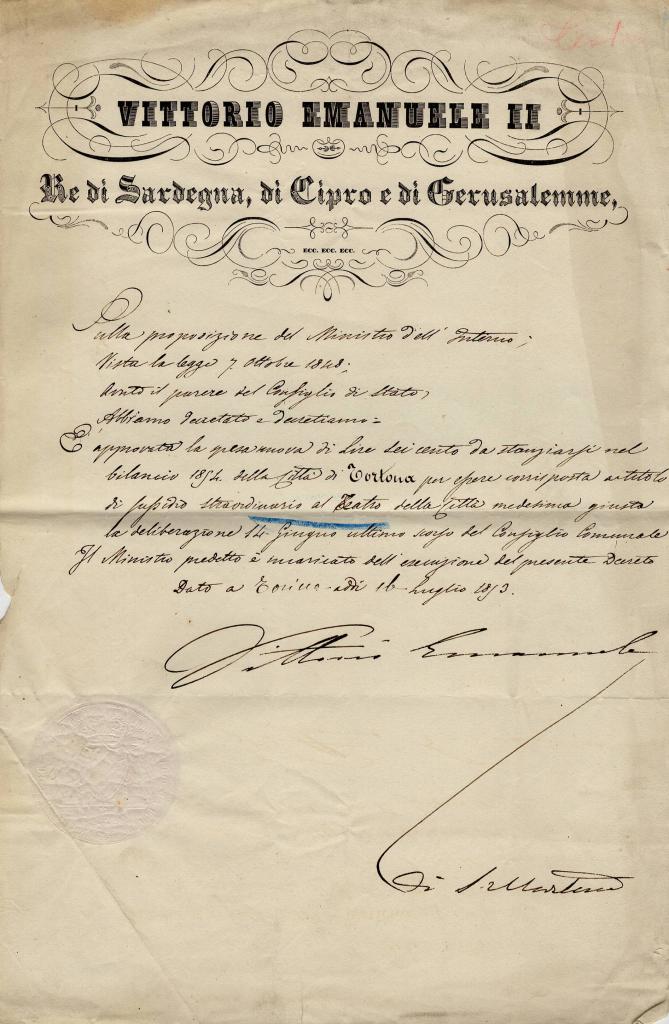 VITTORIO EMANUELE II
Re di Sardegna, di Cipro e di Gerusalemme,
ECC. ECC. ECC.
Sulla proposizione del Ministro dell' Interno;
Vista la legge 7. Ottobre 1848;
Avuto il parere del Consiglio di Stato,
Abbiamo decretato e decretiamo=
È approvata la spesa nuova di Lire Sei cento da stanziarsi nel
bilancio 1854. della Città di Tortona per essere corrisposta a titolo
di sussidio straordinario al Teatro della Città medesima giusta
la deliberazione 14. Giugno ultimo scorso del Consiglio Comunale
Il Ministro predetto è incaricato dell' esecuzione del presente Decreto
Dato a Torino addì 16 Luglio 1853.
Vittorio Emanuele
Di S. Martino